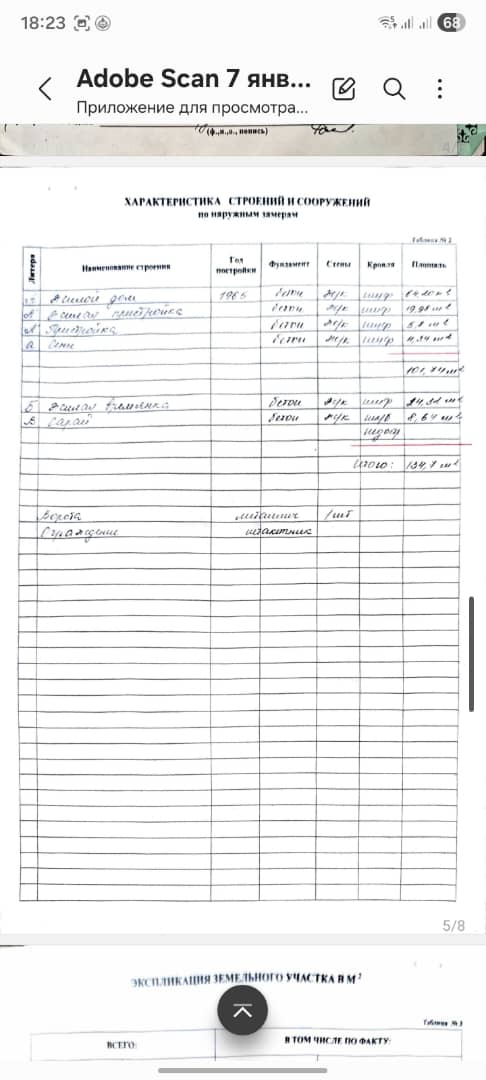 18:23 68
Adobe Scan 7 янв...
Приложение для просмотра...
(ф.,и.,о., подпись)
4/8
ХАРАКТЕРИСТИКА СТРОЕНИЙ И СООРУЖЕНИЙ
по наружным замерам
Таблица № 2
Литера Наименование строения Год постройки Фундамент Стены Кровля Площадь
Жилой дом 1965 бетон ж/к шиф
А' Жилая пристройка бетон ж/к шиф
А" Пристройка бетон ж/к шиф
а Сени бетон ж/к шиф 4,34 м²
Б Жилая времянка бетон ж/к шиф 24,32 м²
В Сарай бетон ж/к 8,64 м²
Итого: 134,7 м²
Ворота металлич 1 шт
Ограждение штакетник
5/8
ЭКСПЛИКАЦИЯ ЗЕМЕЛЬНОГО УЧАСТКА В М²
Таблица № 3
ВСЕГО: В ТОМ ЧИСЛЕ ПО ФАКТУ: